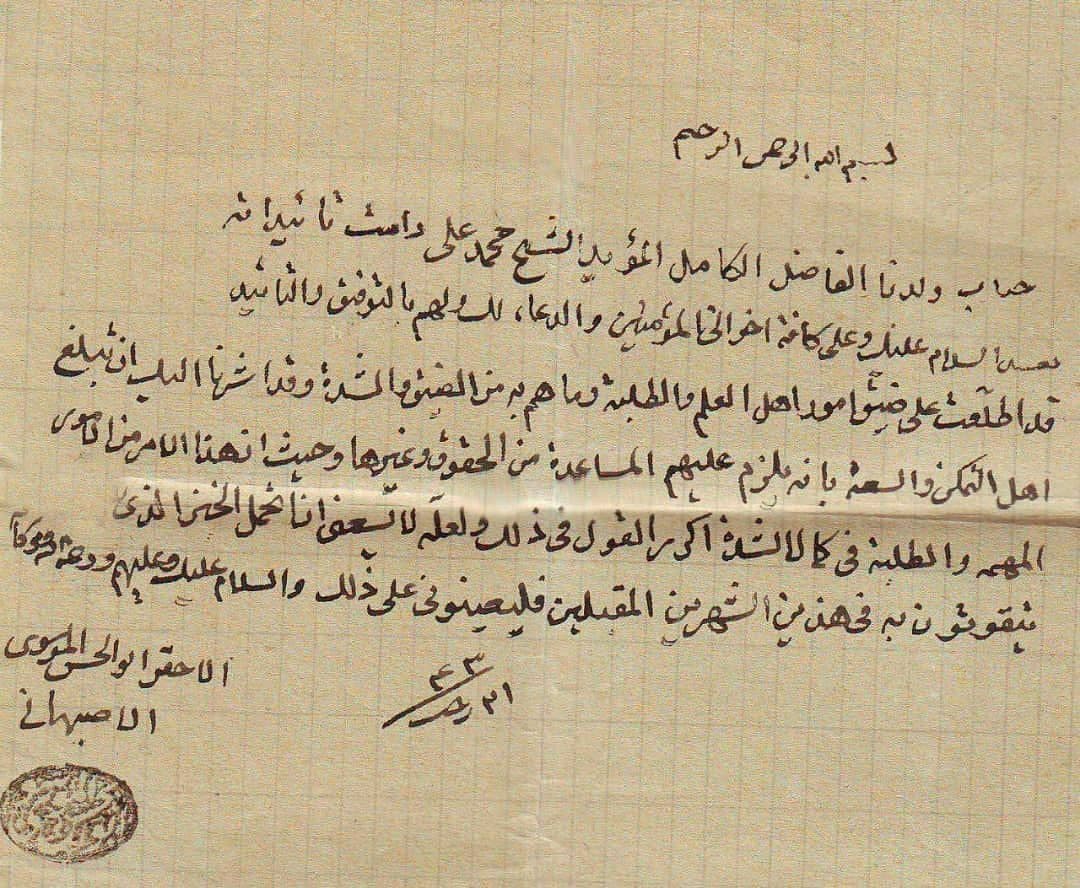 بسم الله الرحمن الرحيم
جناب ولدنا الفاضل الكامل المؤيد الشيخ محمد على دامت تائيداته
بعد السلام عليك وعلى كافة اخواني المؤمنين والدعاء لك ولهم بالتوفيق والتائيد
قد اطلعت على ضيق امور اهل العلم والطلبة وما هم به من الضيق والشدة وقد اشرنا اليك ان تبلغ
اهل التمكن والسعة بانه يلزم عليهم المساعدة من الحقوق وغيرها وحيث ان هذا الامر من الامور
المهمه والطلبة في كمال الشدة اكرر القول في ذلك ولعله لا يسعني انا تحمل الخبز الذي
يتقوتون به في هذين الشهرين المقبلين فليعينوني على ذلك والسلام عليك وعليهم ورحمة الله وبركاته
٢١ رجب ٤٣
الاحقر ابو الحسن الموسوى
الاصبهاني